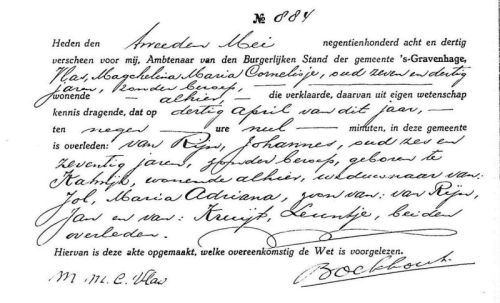 № 884
Heden den tweeden Mei negentienhonderd acht en dertig
verscheen voor mij, Ambtenaar van den Burgerlijken Stand der gemeente 's-Gravenhage,
Vlas, Magchelina Maria Cornelisje, oud zeven en dertig
jaren, zonder beroep, —
wonende — alhier, — die verklaarde, daarvan uit eigen wetenschap
kennis dragende, dat op dertig April van dit jaar, —
ten negen — ure nul — minuten, in deze gemeente
is overleden: van Rijn, Johannes, oud zes en
zeventig jaren, zonder beroep, geboren te
Katwijk, wonende alhier, weduwnaar van:
Jol, Maria Adriana, zoon van: van Rijn,
Jan en van: Kruijt, Leuntje, beiden
overleden.
Hiervan is deze akte opgemaakt, welke overeenkomstig de Wet is voorgelezen.
M. M. C. Vlas Boekhout